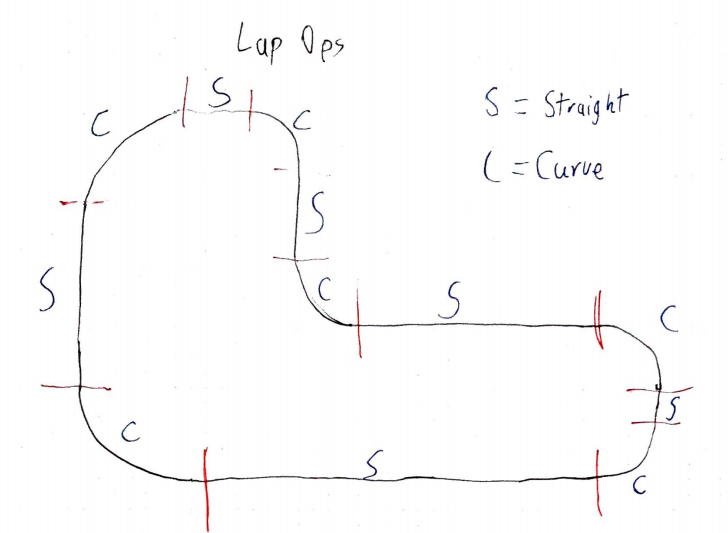 Lap Ops
S = Straight
C = Curve
S
C
C
S
S
C
S
C
S
C
S
C